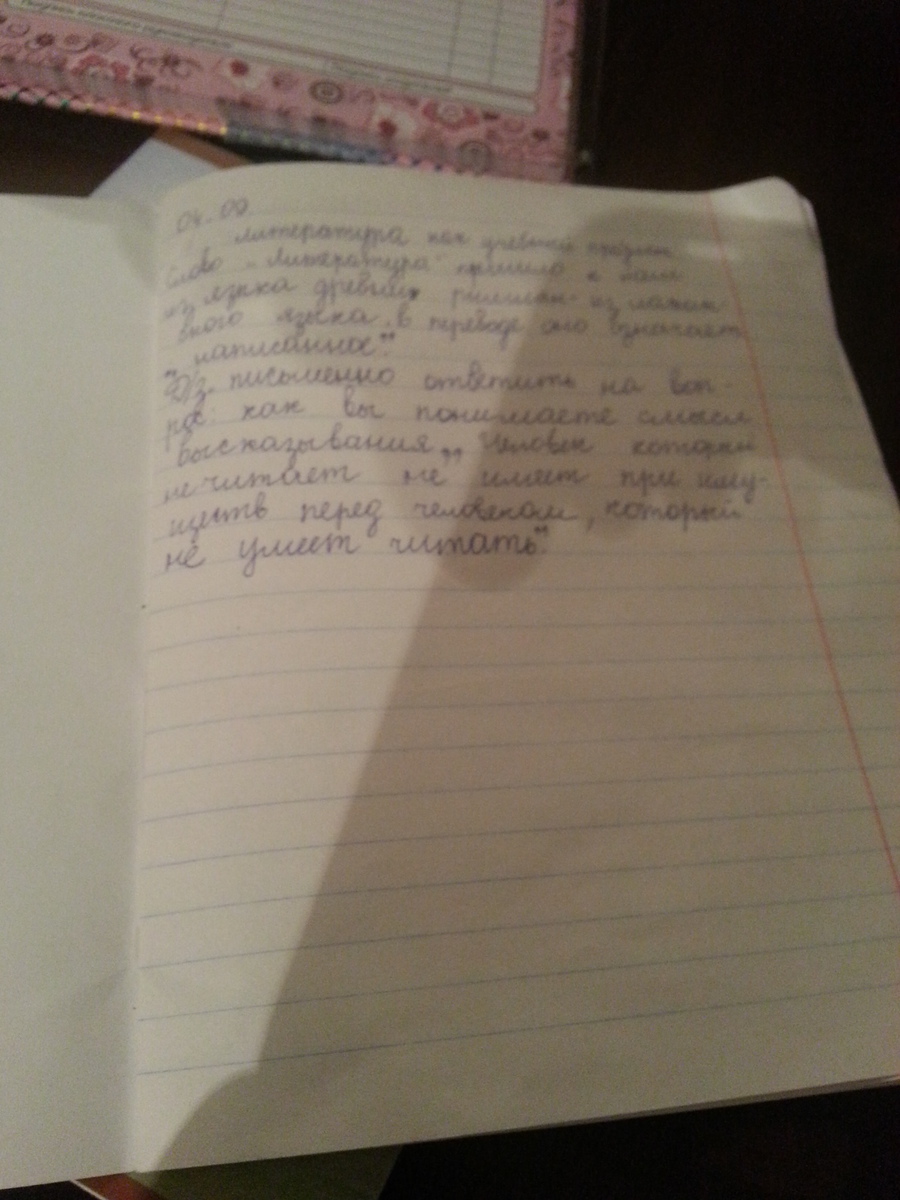 04.09
Литература как учебный предмет
Слово „Литература" пришло к нам
из языка древних римлян - из латин-
ского языка, в переводе оно взначает
„написанное".
Д/з. письменно ответить на воп-
рос: как вы понимаете смысл
высказывания „Человек который
не читает не имеет при иму-
ществ перед человеком, который
не умеет читать".